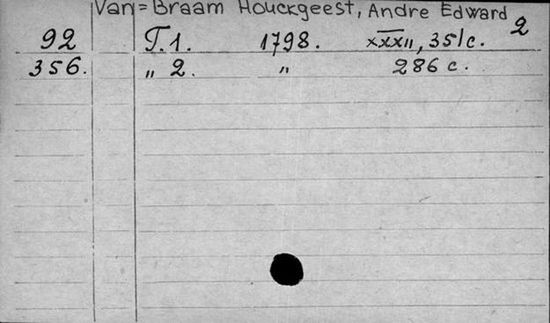 Van=Braam Houckgeest, Andre Edward
2
92 T.1. 1798. xxxıı, 351c.
356. „ 2. „ 286 c.